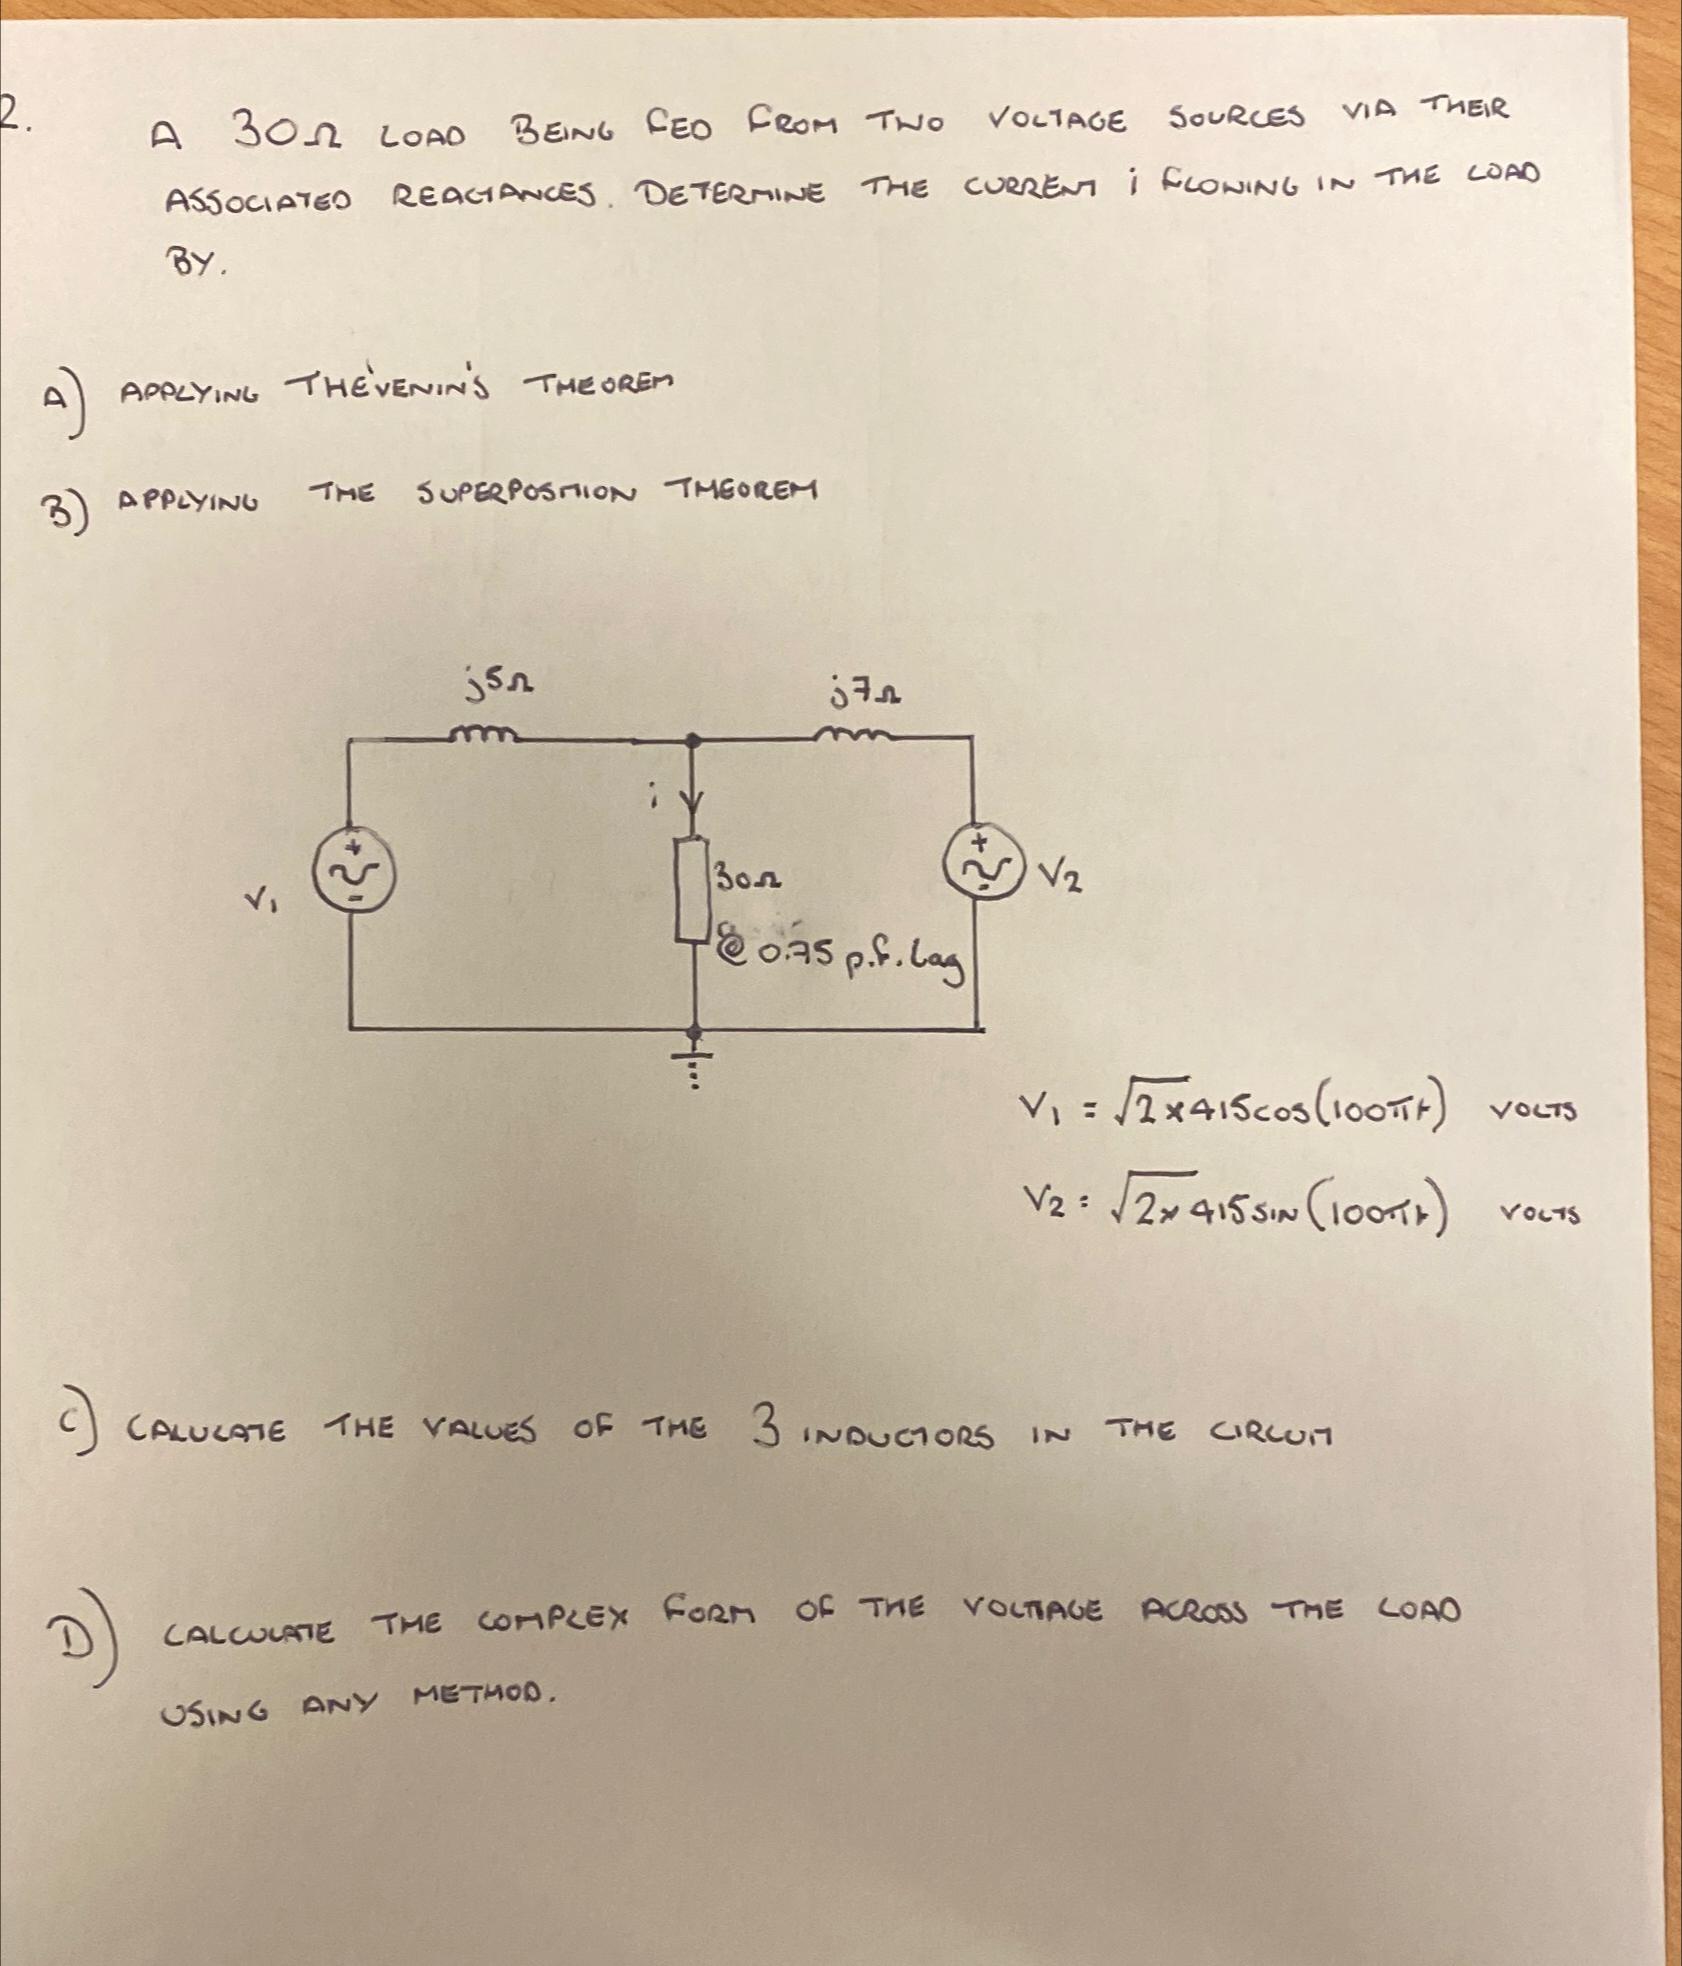 2. A 30Ω LOAD BEING FED FROM TWO VOLTAGE SOURCES VIA THEIR
ASSOCIATED REACTANCES. DETERMINE THE CURRENT i FLOWING IN THE LOAD
BY.
A) APPLYING THE'VENIN'S THEOREM
B) APPLYING THE SUPERPOSITION THEOREM
j5Ω
j7Ω
i
+
-
V1
30Ω
@ 0.75 p.f. lag
+
-
V2
V1 = √2×415cos(100πt) VOLTS
V2 = √2×415sin(100πt) VOLTS
C) CALULATE THE VALUES OF THE 3 INDUCTORS IN THE CIRCUIT
D) CALCULATE THE COMPLEX FORM OF THE VOLTAGE ACROSS THE LOAD
USING ANY METHOD.